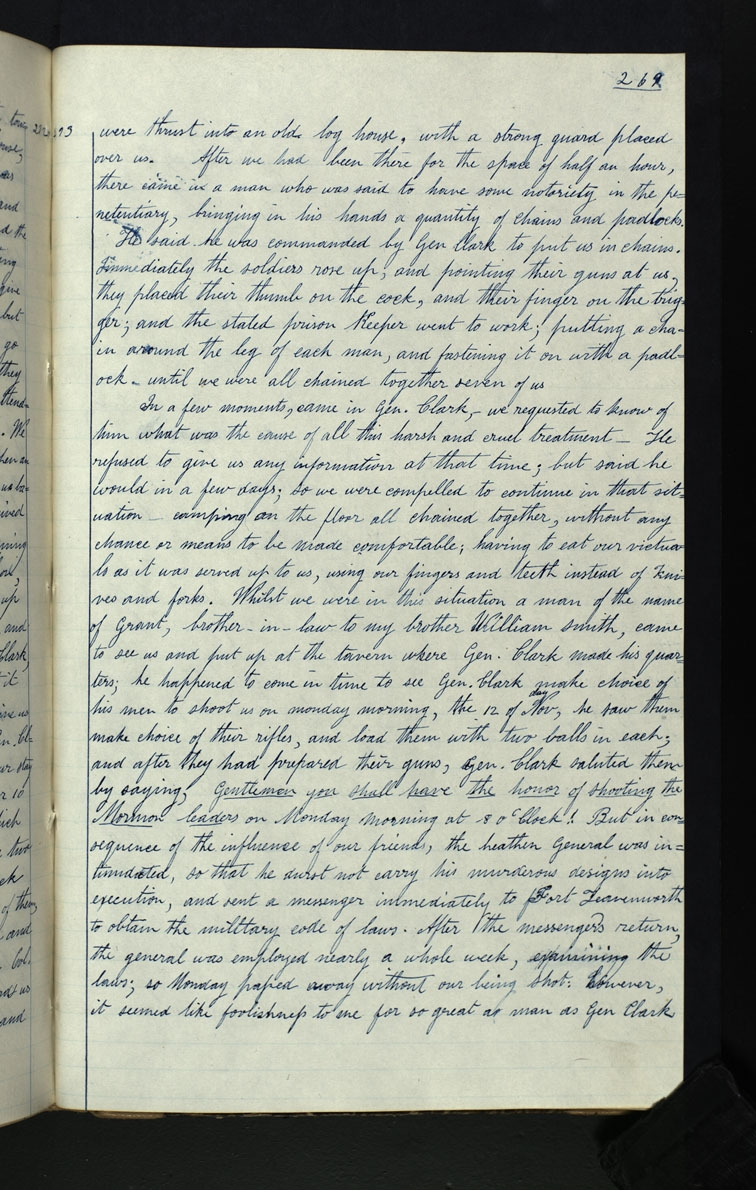 269
were thrust into an old log house, with a strong guard placed
over us. After we had been there for the space of half an hour,
there came in a man who was said to have some notoriety in the pe=
netentiary, bringing in his hands a quantity of chains and padlocks.
He said he was commanded by Gen Clark to put us in chains.
Immediately the soldiers rose up, and pointing their guns at us,
they placed their thumb on the cock, and their finger on the trig=
ger; and the stated prison Keeper went to work; putting a cha=
in around the leg of each man, and fastening it on with a padl=
ock - until we were all chained together seven of us
In a few moments, came in Gen. Clark, - we requested to know of
him what was the cause of all this harsh and cruel treatment - He
refused to give us any information at that time; but said he
would in a few days; so we were compelled to continue in that sit=
uation - camping on the floor all chained together, without any
chance or means to be made comfortable; having to eat our victua=
ls as it was served up to us, using our fingers and teeth instead of kni=
ves and forks. Whilst we were in this situation a man of the name
of Grant, brother-in-law to my brother William Smith, came
to see us and put up at the tavern where Gen. Clark made his quar=
ters; he happened to come in time to see Gen. Clark make choice of
his men to shoot us on monday morning, the 12 day of Nov, he saw them
make choice of their rifles, and load them with two balls in each;
and after they had prepared their guns, Gen. Clark saluted them
by saying, Gentlemen you shall have the honor of shooting the
Mormon leaders on Monday morning at 8 o'Clock! But in con=
sequence of the influence of our friends, the heathen General was in=
timidated, so that he durst not carry his murderous designs into
execution, and sent a messenger immediately to Fort Leavenworth
to obtain the military code of laws. After the messengers return,
the general was employed nearly a whole week, examining the
laws; so Monday passed away without our being shot: However,
it seemed like foolishness to me for so great as man as Gen Clark